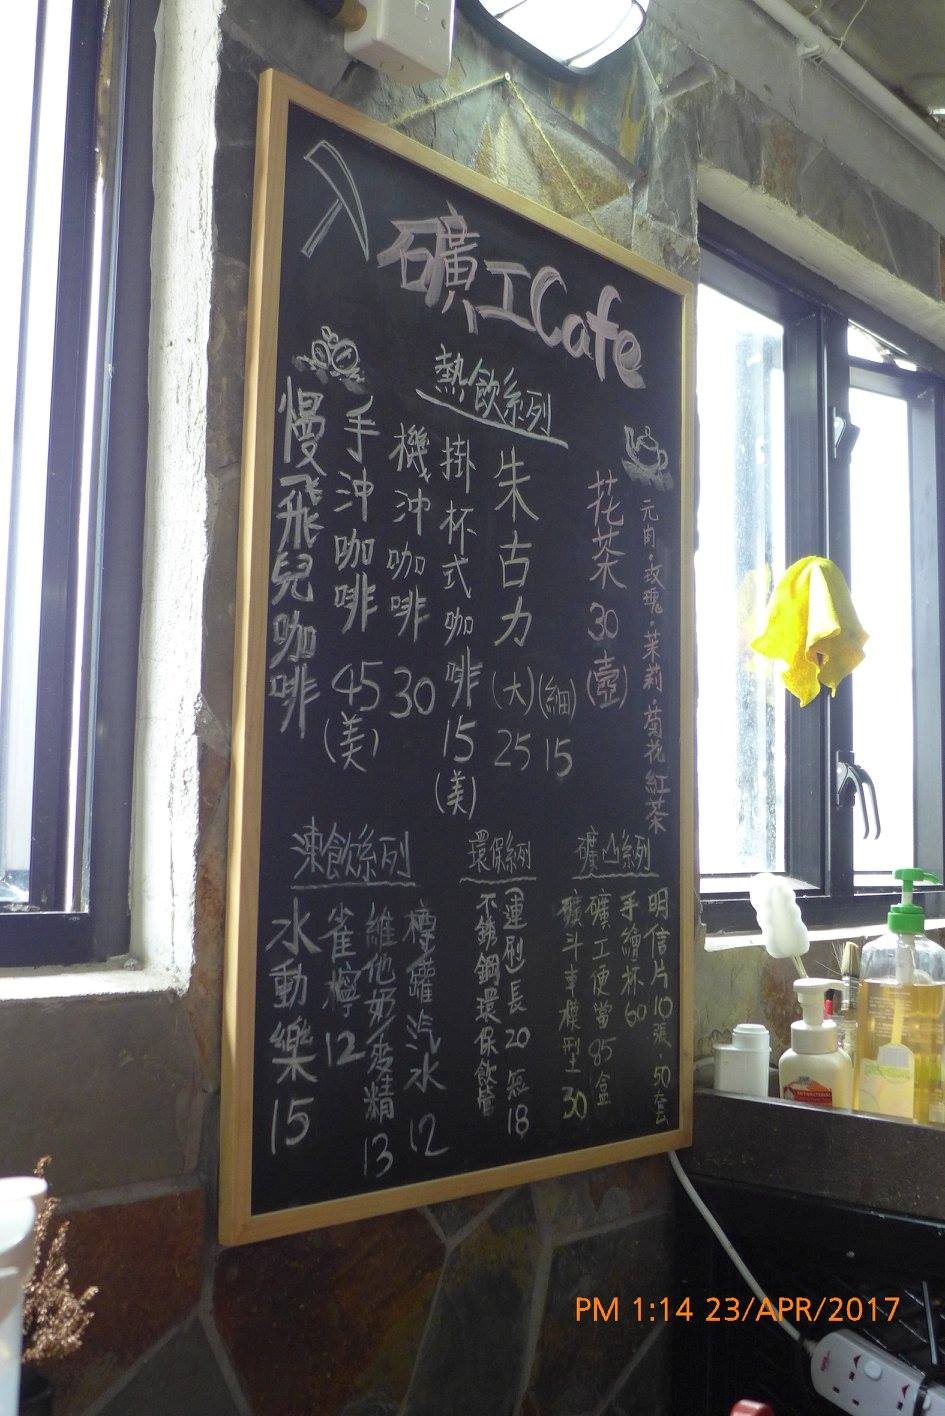 礦工Cafe
熱飲系列
慢飛兒咖啡
手沖咖啡 45 (美)
機沖咖啡 30
掛杯式咖啡 15 (美)
朱古力 (大) 25 (細) 15
花茶 30 (壺)
元肉·玫瑰·茉莉·菊花 紅茶
凍飲系列
水動樂 15
雀檸 12
維他奶/麥精 13
樽罐汽水 12
環保系列
不銹鋼環保飲管
(連刷) 長20 短18
礦山系列
礦斗車模型 30
礦工便當 85 盒
手繪杯 60
明信片 10張·50套
PM 1:14 23/APR/2017